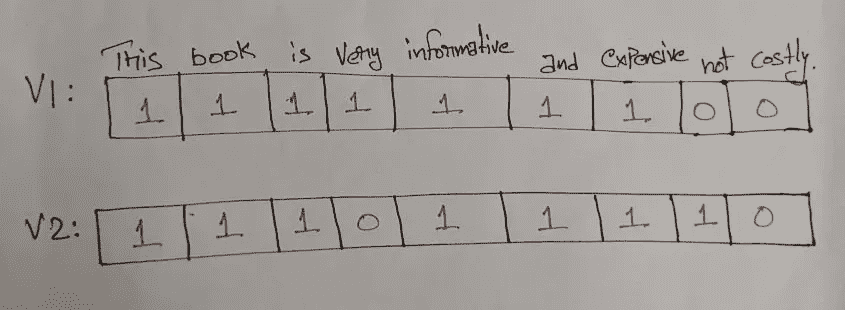 This book is Very informative and Expensive not Costly.
V1: 1 1 1 1 1 1 1 0 0
V2: 1 1 1 0 1 1 1 1 0